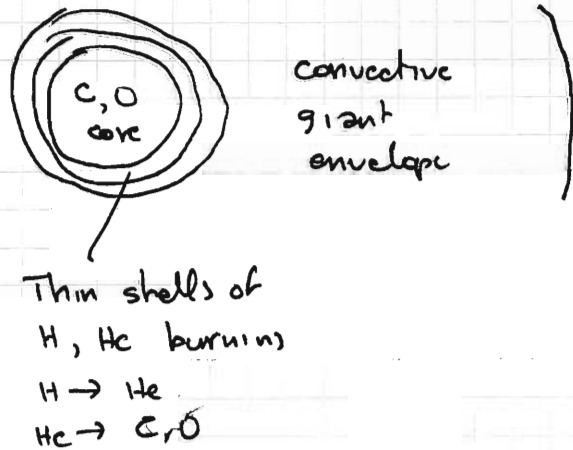 C, O
core
convective
giant
envelope
Thin shells of
H, He burning
H → He
He → C, O